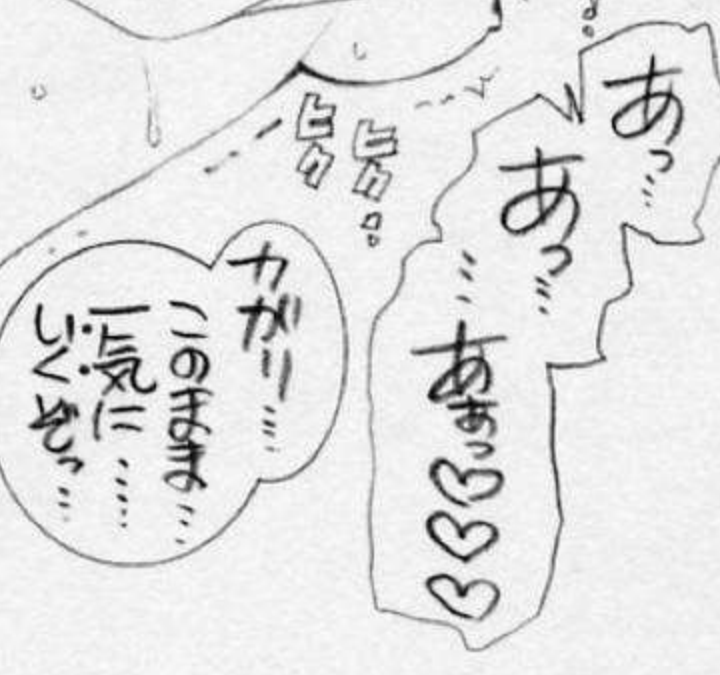 あっ…
あっ…
…あぁっ♡♡♡
ヒク
ヒク
カガリ…
このまま…
一気に……
いくぞっ…